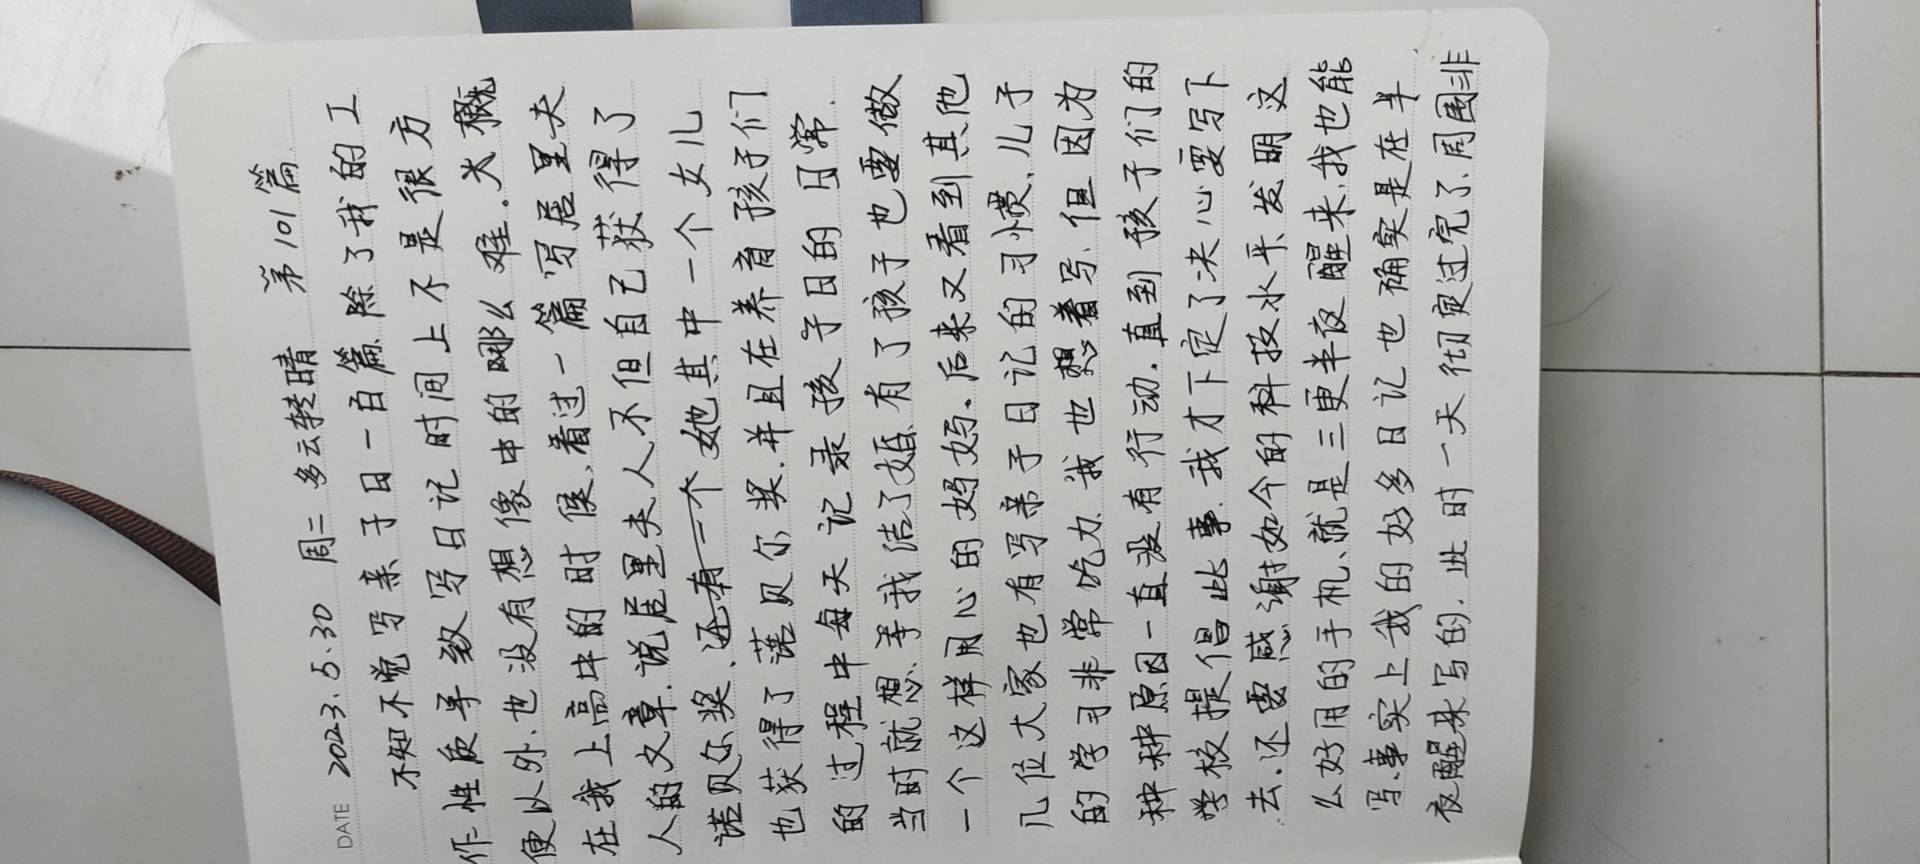 DATE 2023.5.30 周二 多云转晴 第101篇.
不知不觉写亲子日一百篇.除了我的工
作性质导致写日记时间上不是很方
便以外.也没有想像中的哪么难。大概
在我上高中的时候、看过一篇写居里夫
人的文章.说居里夫人不但自己获得了
诺贝尔奖、还有一个她其中一个女儿
也获得了诺贝尔奖.并且在养育孩子们
的过程中每天记录孩子日的日常.
当时就想.等我结了婚、有了孩子也要做
一个这样用心的妈妈。后来又看到其他
几位大家也有写亲子日记的习惯、儿子
的学习非常吃力.我也想着写、但因为
种种原因一直没有行动.直到孩子们的
学校提倡此事.我才下定了决心要写下
去.还要感谢如今的科技水平、发明这
么好用的手机、就是三更半夜醒来.我也能
写.事实上我的好多日记也确实是在半
夜醒来写的.此时一天彻底过完了.周围非